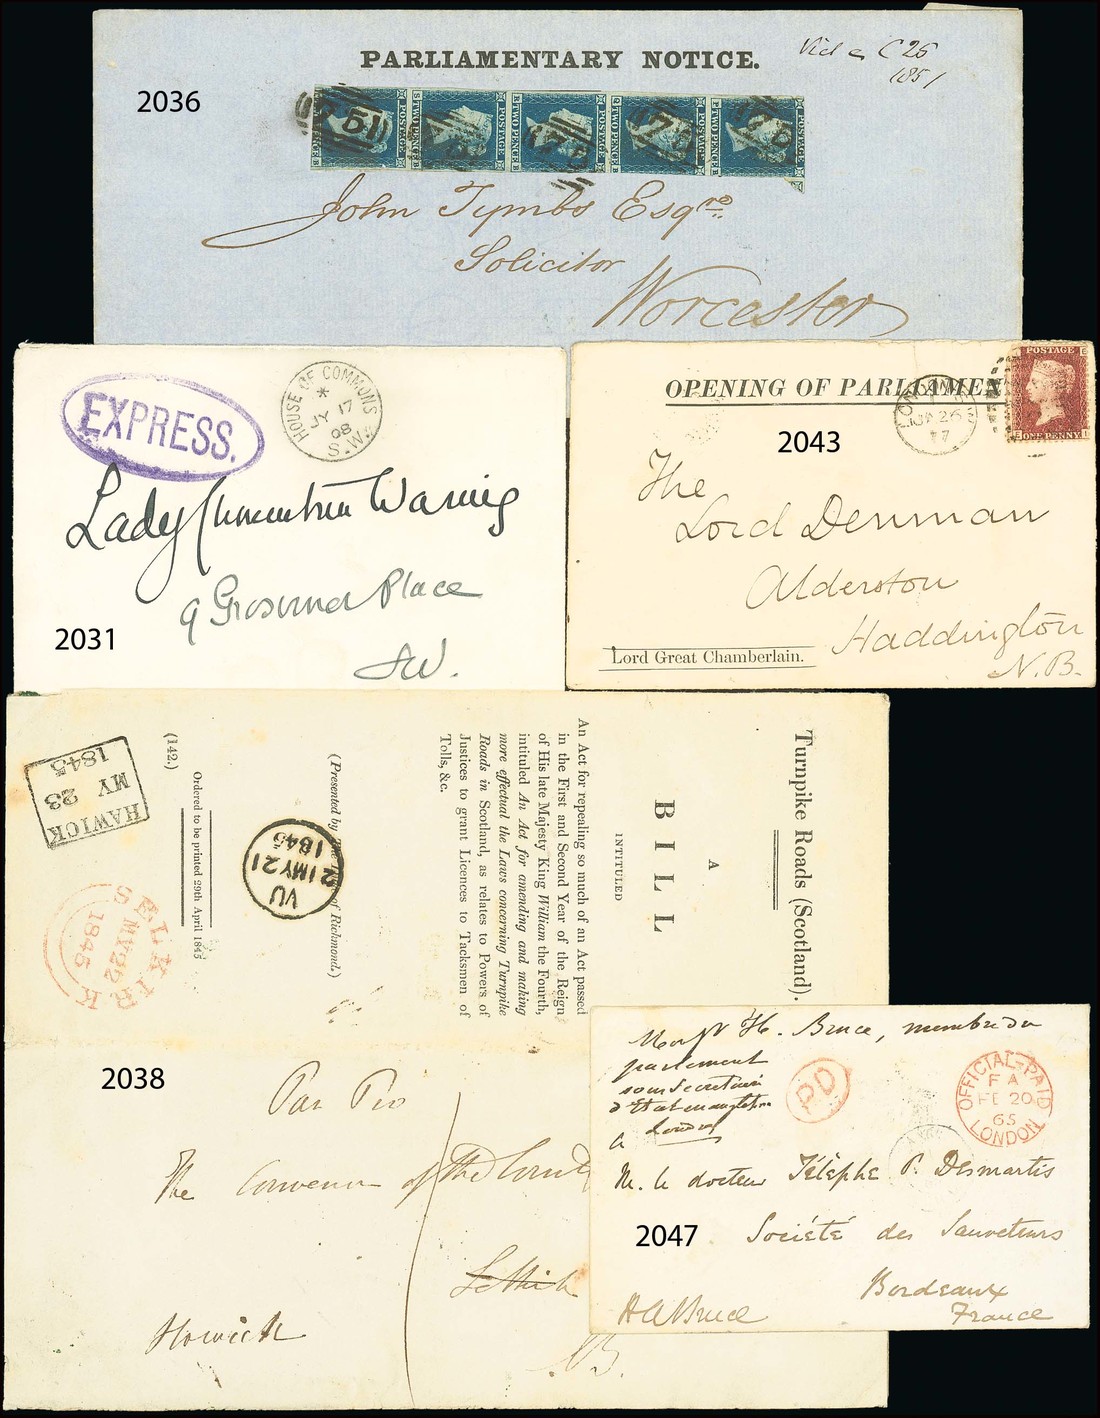 PARLIAMENTARY NOTICE.
C 25
1851
2036
POSTAGE
TWO PENCE
POSTAGE
TWO PENCE
POSTAGE
TWO PENCE
POSTAGE
TWO PENCE
POSTAGE
John Tymbs Esqre
Solicitor
Worcester
EXPRESS.
HOUSE OF COMMONS
*
JY 17
08
S.W.
Lady Waring
9 Grosvenor Place
SW.
2031
OPENING OF PARLIAMEN
POSTAGE
ONE PENNY
LONDON
JA 26
77
2043
The
Lord Denman
Alderston
Haddington
N.B.
Lord Great Chamberlain.
Turnpike Roads (Scotland).
A
BILL
INTITULED
An Act for repealing so much of an Act passed
in the First and Second Year of the Reign
of His late Majesty King William the Fourth,
intituled An Act for amending and making
more effectual the Laws concerning Turnpike
Roads in Scotland, as relates to Powers of
Justices to grant Licences to Tacksmen of
Tolls, &c.
(Presented by The of Richmond.)
Ordered to be printed 29th April 1845
(142.)
HAWICK
MY 23
1845
VU
21 MY 21
1845
SELKIRK
MY 22
1845
2038
The Convener of the County
Selkirk
Howick
NB.
H. Bruce, membre du
parlement
sous Secretaire
d'Etat en angleterre
a Londres
PD
OFFICIAL-PAID
FA
FE 20
65
LONDON
M. le docteur Télèphe P. Desmartis
2047
Société des Sauveteurs
Bordeaux
France
H A Bruce